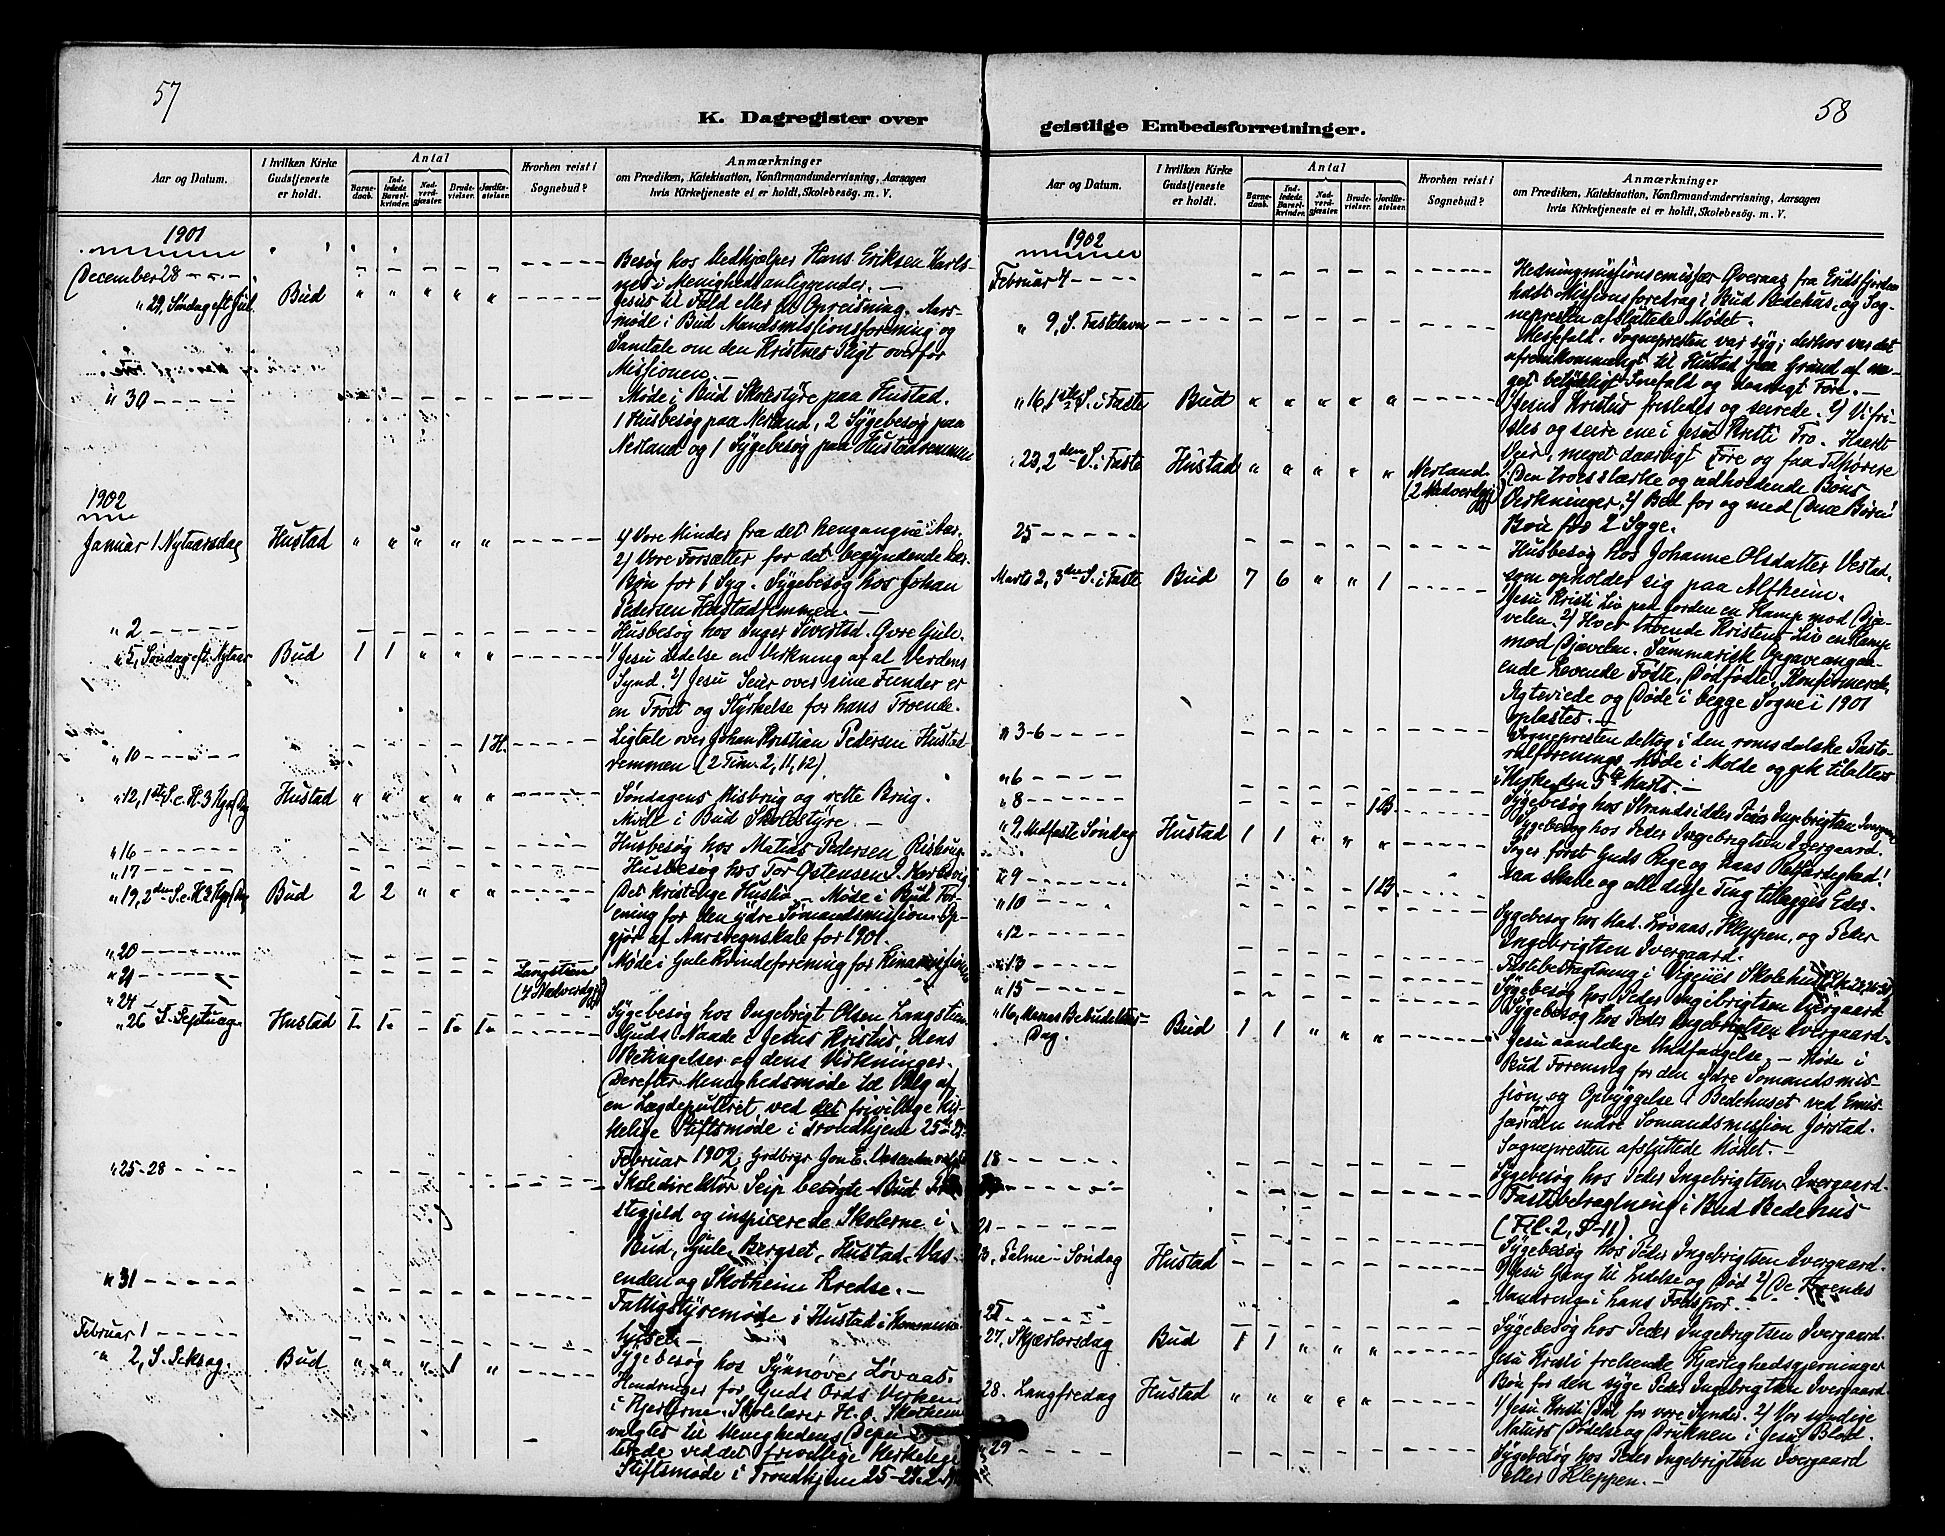 57
K. Dagregister over
Aar og Datum.
I hvilken Kirke
Gudstjeneste
er holdt.
Antal
Barne-
daab.
Ind-
ledede
Barsel-
kvinder.
Nad-
verd-
gjæster.
Brude-
vielser.
Jordfæ-
stelser.
Hvorhen reist i
Sognebud?
Anmærkninger
om Prædiken, Katekisation, Konfirmandundervisning, Aarsagen
hvis Kirketjeneste ei er holdt, Skolebesög. m. V.
1901
December 28
Besøg hos Medhjælper Hans Eriksen
i Menighedsanliggender. —
" 29, Søndag eft. Jul. Bud " " " " "
Jesus til Fald eller til Opreisning. Aars-
møde i Bud Mandsmissionsforening og
Samtale om den Kristnes Pligt overfor
Missionen. —
" 30
Møde i Bud Skolestyre paa Hustad.
1 Husbesøg paa Nerland, 2 Sygebesøg paa
Nerland og 1 Sygebesøg paa Hustadvemmen
1902
Januar 1 Nytaarsdag Hustad " " " " "
1) Vore Minder fra det hengangne Aar.
2) Vore Forsætter for det begyndende Aar.
Bøn for 1 Syg. Sygebesøg hos Johan
Pedersen Hustadvemmen. —
" 2
Husbesøg hos Inger Sivertsd. Øvre Gule.
" 5, Søndag eft. Nytaar Bud 1 1 " " "
1) Jesu Lidelse en Virkning af al Verdens
Synd. 2) Jesu Seier over sine Fiender er
en Trøst og Styrkelse for hans Troende.
" 10 1 H.
Ligtale over Johan Kristian Pedersen Hustad-
vemmen (2 Tim. 2, 11, 12).
" 12, 1ste S. e. H. 3 Kgs. Dag Hustad " " " " "
Søndagens Misbrug og rette Brug.
Møde i Bud Skolestyre. —
" 16
Husbesøg hos Matias Pedersen
" 17
Husbesøg hos Tor Østensen
" 19, 2den S. e. H. 3 Kgs. Dag Bud 2 2 " " "
Det kristelige Husliv. — Møde i Bud For-
ening for den ydre Sømandsmission. Op-
gjør af Aarsregnskabe for 1901.
" 20
Møde i Gule Kvindeforening for Kinamissionen
" 21
" 24
Langstien
(4 Nadverdgj.)
Sygebesøg hos Ingebrigt Olsen Langstien
" 26 S. Septuag. Hustad 1 1 - 1 1
Guds Naade i Jesus Kristus, dens
Betingelser og dens Virkninger.
Derefter Menighedsmøde til Valg af
en Lægdeputeret ved det frivillige kir-
kelige Stiftsmøde i Trondhjem 25–27
Februar 1902. Grdbrgr Jon E.
" 25-28
Skoledirektør Seip besøgte Bud
stegjeld og inspicerede Skolerne i
Bud, Gule, Bergset, Hustad, Vas-
enden og Skotheim Kredse. —
" 31
Fattigstyremøde i Hustad i Kommune-
huset. —
Februar 1
Sygebesøg hos Synnøver Løvaas.
" 2, S. Seksag. Bud " " " 1 "
Hindringer for Guds Ords Virken
i Hjerterne. Skolelærer H. O. Skotheim
valgtes til Menighedens Depu-
terede ved det frivillige kirkelige
Stiftsmøde i Trondhjem 25–27
58
geistlige Embedsforretninger.
Aar og Datum.
I hvilken Kirke
Gudstjeneste
er holdt.
Antal
Barne-
daab.
Ind-
ledede
Barsel-
kvinder.
Nad-
verd-
gjæster.
Brude-
vielser.
Jordfæ-
stelser.
Hvorhen reist i
Sognebud?
Anmærkninger
om Prædiken, Katekisation, Konfirmandundervisning, Aarsagen
hvis Kirketjeneste ei er holdt, Skolebesög. m. V.
1902
Februar 4
Hedningmissionsemissær Øveraas fra Eridsfjorden
holdt Missionsforedrag i Bud Bedehus, og Sog-
nepresten afsluttede Mødet.
" 9, S. Fastelavn
Messefald. Sognepresten var syg; derhos var det
ufremkommeligt til Hustad paa Grund af me-
get betydeligt Snefald og daarligt Føre. —
" 16, 1ste S. i Faste Bud " " " " "
1) Jesus Kristus fristedes og seirede. 2) Vi fri-
stes og seire ene i Jesu Kristi Tro. Haardt
Veir, meget daarligt Føre og faa Tilhørere
" 23, 2den S. i Faste Hustad " " " " " Nerland
(2 Nadverdgj.)
1) Den troesstærke og udholdende Bøns
Virkninger. 2) Bed for og med Dine Børn!
Bøn for 2 Syge.
25
Husbesøg hos Johanne Olsdatter Vestad,
som opholder sig paa Alfheim.
Marts 2, 3die S. i Faste Bud 7 6 " " 1
1) Jesu Kristi Liv paa Jorden en Kamp mod Djæ-
velen. 2) Hver troende Kristens Liv en Kamp
mod Djævelen. Summarisk Opgave angaa-
ende Levende Fødte, Dødfødte, Konfirmerede,
Ægteviede og Døde i begge Sogne i 1901
oplæstes. —
" 3-6
Sognepresten deltog i den romsdalske Pasto-
ralforenings Møde i Molde og gik tilalters
i Kirken den 5te Marts. —
" 6
" 8 1 B.
Sygebesøg hos Strandsidder Peder Ingebrigtsen Ivergaard
" 9, Midfaste Søndag Hustad 1 1 " " "
Sygebesøg hos Peder Ingebrigtsen Ivergaard.
Søger først Guds Rige og hans Retfærdighed!
saa skulle og alle disse Ting tillægges Eder.
" 9 1 B.
" 10
Sygebesøg hos Mad. Løvaas, Kleppen, og Peder
Ingebrigtsen Ivergaard.
" 12
" 13
Fastebetragtning i Vigenes Skolehus
" 15
Sygebesøg hos Peder Ingebrigtsen Ivergaard
Sygebesøg hos Peder Ingebrigtsen Ivergaard.
" 16, Marias Bebudelses-
Dag. Bud 1 1 " " "
Jesu aandelige Undfangelse. — Møde i
Bud Forening for den ydre Sømandsmis-
sion, og Opbyggelse i Bedehuset ved Emis-
sær for den indre Sømandsmission Jørstad.
Sognepresten afsluttede Mødet. —
18
Sygebesøg hos Peder Ingebrigtsen Ivergaard.
Fastebetragtning i Bud Bedehus
(Fil. 2, 5-11)
21
Sygebesøg hos Peder Ingebrigtsen Ivergaard.
23, Palme-Søndag Hustad
1) Jesu Gang til Lidelse og Død 2) De Troendes
Vandring i hans Fodspor. —
25
Sygebesøg hos Peder Ingebrigtsen Ivergaard.
27, Skjærtorsdag Bud 1 1 " " "
Jesu Kristi frelsende Kjærlighedsgjerninger
Bøn for den syge Peder Ingebrigtsen Ivergaard
28. Langfredag Hustad " " " " "
1) Jesu Kristi Død for vore Synder. 2) Vor syndige
Naturs Dødelse og Druknen i Jesu Blod.
" 29
Sygebesøg hos Peder Ingebrigtsen Ivergaard
eller Kleppen. —